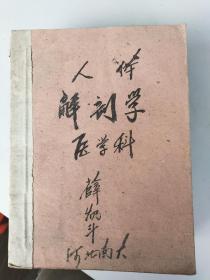 人体
解剖学
医学科
薛炳斗
河北南大